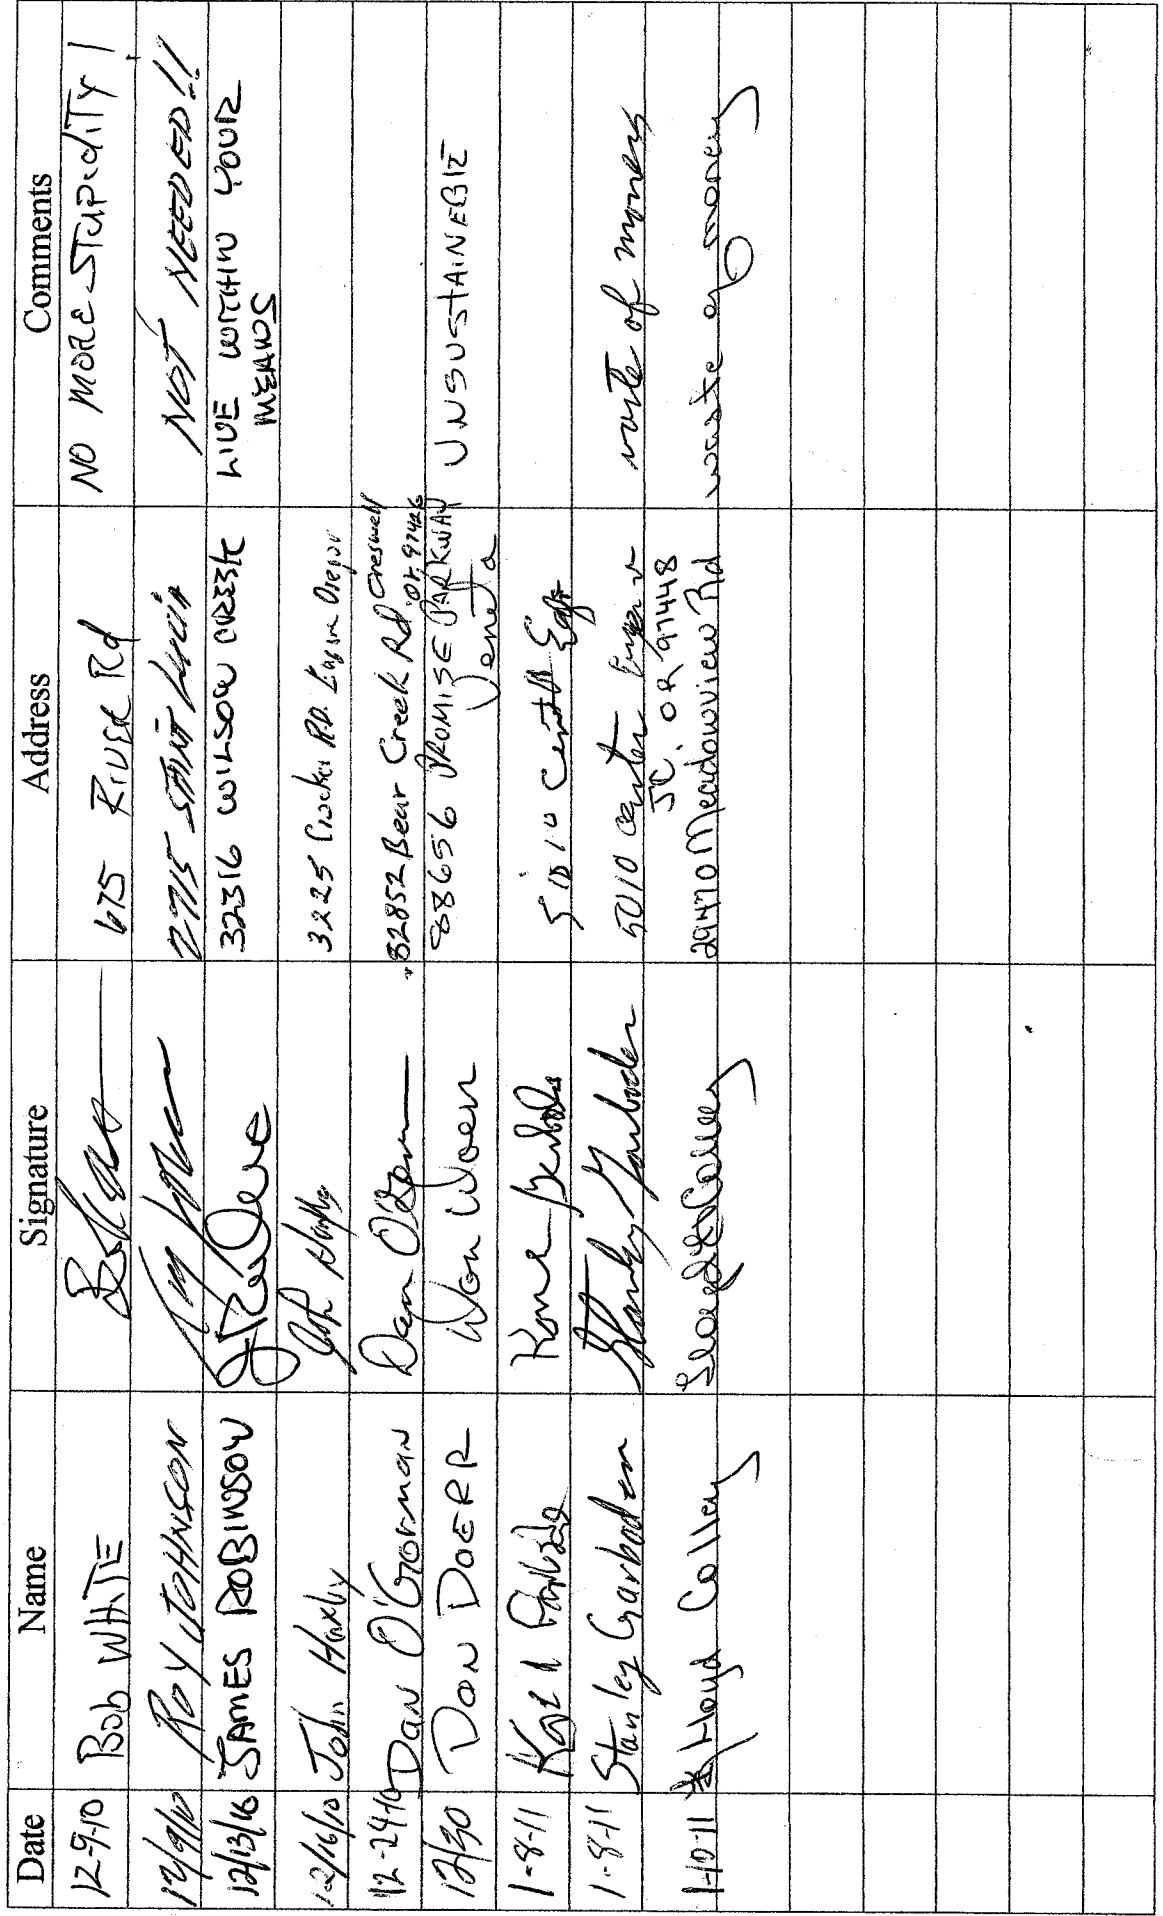 Date Name Signature Address Comments
12-9-10 Bob WHITE 675 RIVER Rd NO MORE STUPidiTY!
12/9/10 ROY JOHNSON 2715 SAINT NOT NEEDED!!
12/13/10 JAMES ROBINSON 32316 WILSON CREEK LIVE WITHIN YOUR
MEANS
12/16/10 John 3225 Crocker RD. Eugene Oregon
12-24-10 Dan O'Gorman 82852 Bear Creek Rd Creswell
OR. 97426
12/30 DON DOERR Don Doerr 88656 PROMISE PARKWAY UNSUSTAINEBLE
Veneta
1-8-11 5010 Center
1-8-11 Stanley Garboden Stanley Garboden 5010 Center Eugene waste of money
JC. OR 97448
1-10-11 Floyd Colley Floyd Colley 29470 Meadowview Rd waste of money